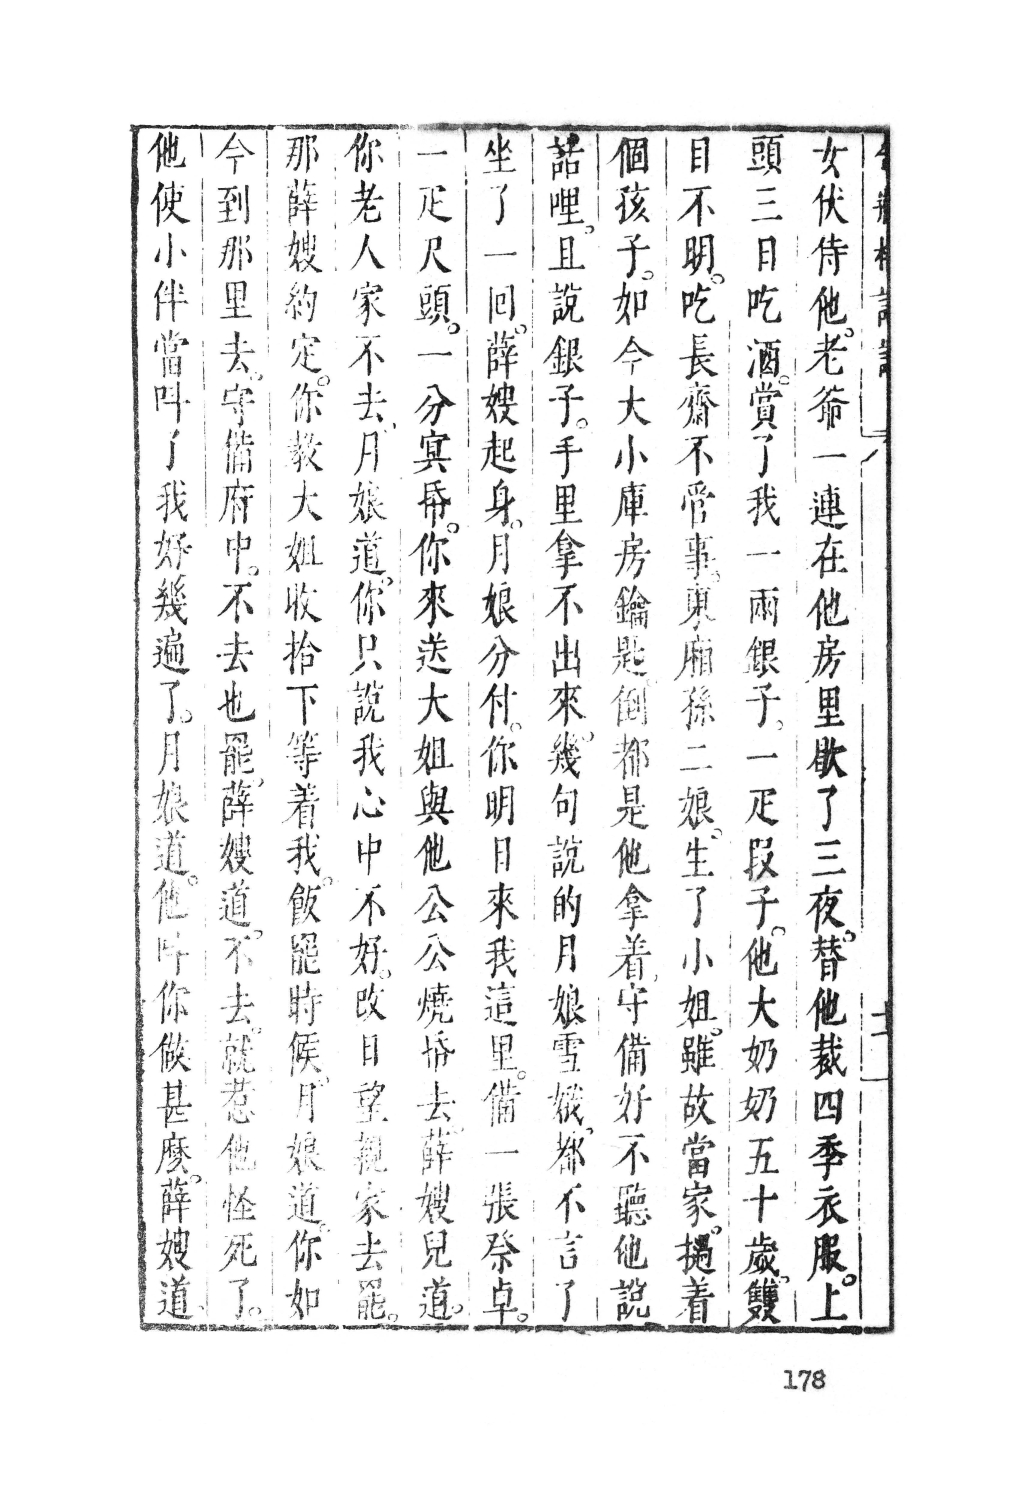 女伏侍他。老爺一連在他房里歇了三夜。替他裁四季衣服。上
頭三日吃酒。賞了我一兩銀子。一疋段子。他大奶奶五十歲。雙
目不明。吃長齋不管事。東廂孫二娘。生了小姐。雖故當家。撾着
個孩子。如今大小庫房鑰匙。倒都是他拿着。守備好不聽他說
話哩。且說銀子。手里拿不出來。幾句說的月娘雪娥。都不言了
坐了一回。薛嫂起身。月娘分付。你明日來我這里。備一張祭卓。
一疋尺頭。一分冥帋。你來送大姐與他公公燒帋去。薛嫂兒道。
你老人家不去。月娘道。你只說我心中不好。改日望親家去罷。
那薛嫂約定。你教大姐收拾下等着我。飯罷時候。月娘道。你如
今到那里去。守備府中。不去也罷。薛嫂道。不去。就惹他怪死了。
他使小伴當叫了我好幾遍了。月娘道。他叫你做甚麼。薛嫂道。
178